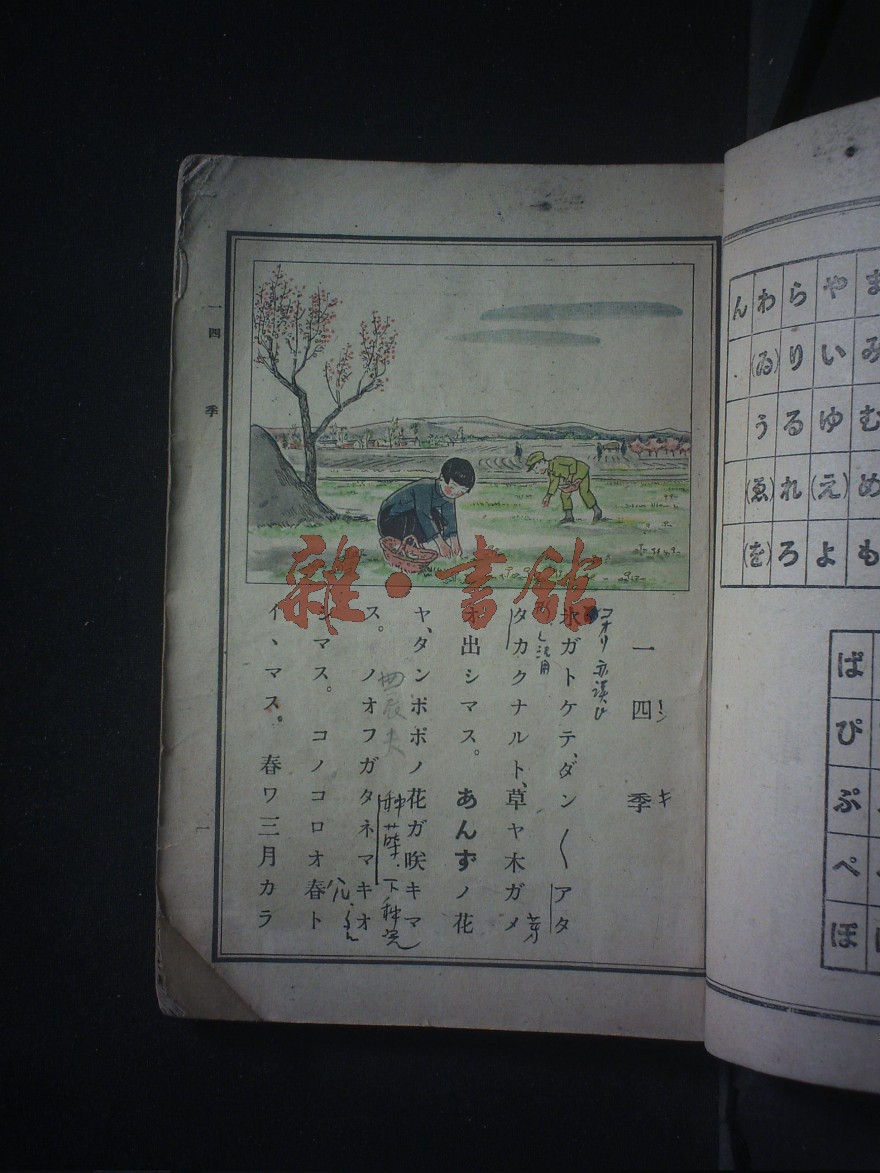 一 四季
シキ
氷ガトケテ、ダン〱アタ
タカクナルト、草ヤ木ガメ
オ出シマス。あんずノ花
ヤ、タンポポノ花ガ咲キマ
ス。ノオフガタネマキオ
シマス。コノコロオ春ト
イヽマス。春ワ三月カラ
コオリ
芽
一 四季
一
雜·書館
まやらわん
みいり(ゐ)
むゆるう
め(え)れ(ゑ)
もよろ(を)
ぱ
ぴ
ぷ
ぺ
ぽ